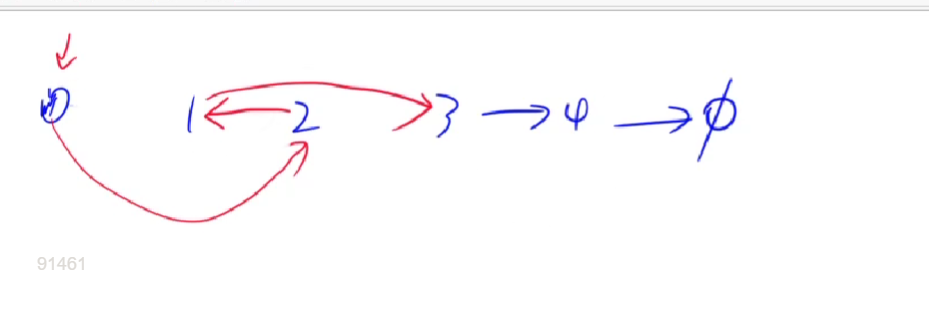 1 2 3 → 4 → ∅
91461